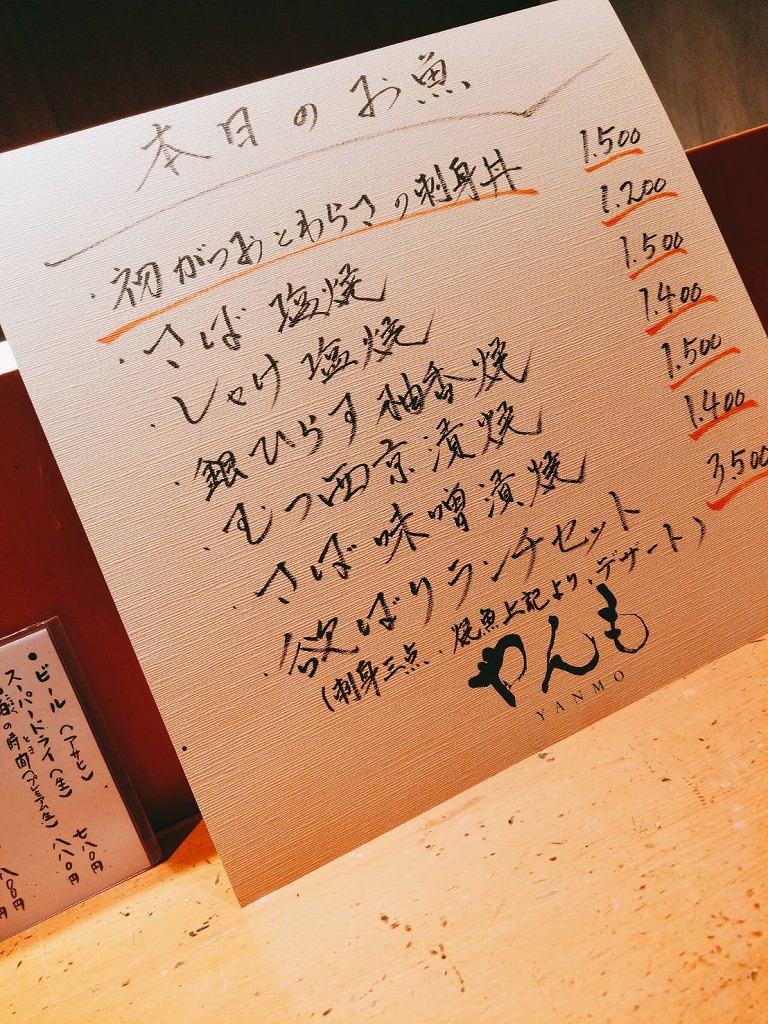 本日のお魚
・初がつおとわらさの刺身丼 1.500
・さば 塩焼 1.200
・しゃけ 塩焼 1.500
・銀ひらす 柚香焼 1.400
・むつ西京漬焼 1.500
・さば味噌漬焼 1.400
・欲ばりランチセット 3.500
(刺身三点、焼魚上記より、デザート)
やんも
YANMO
●ビール(アサヒ)
スーパードライ(生) 七八〇円
の時間(プレミアム生) 八八〇円